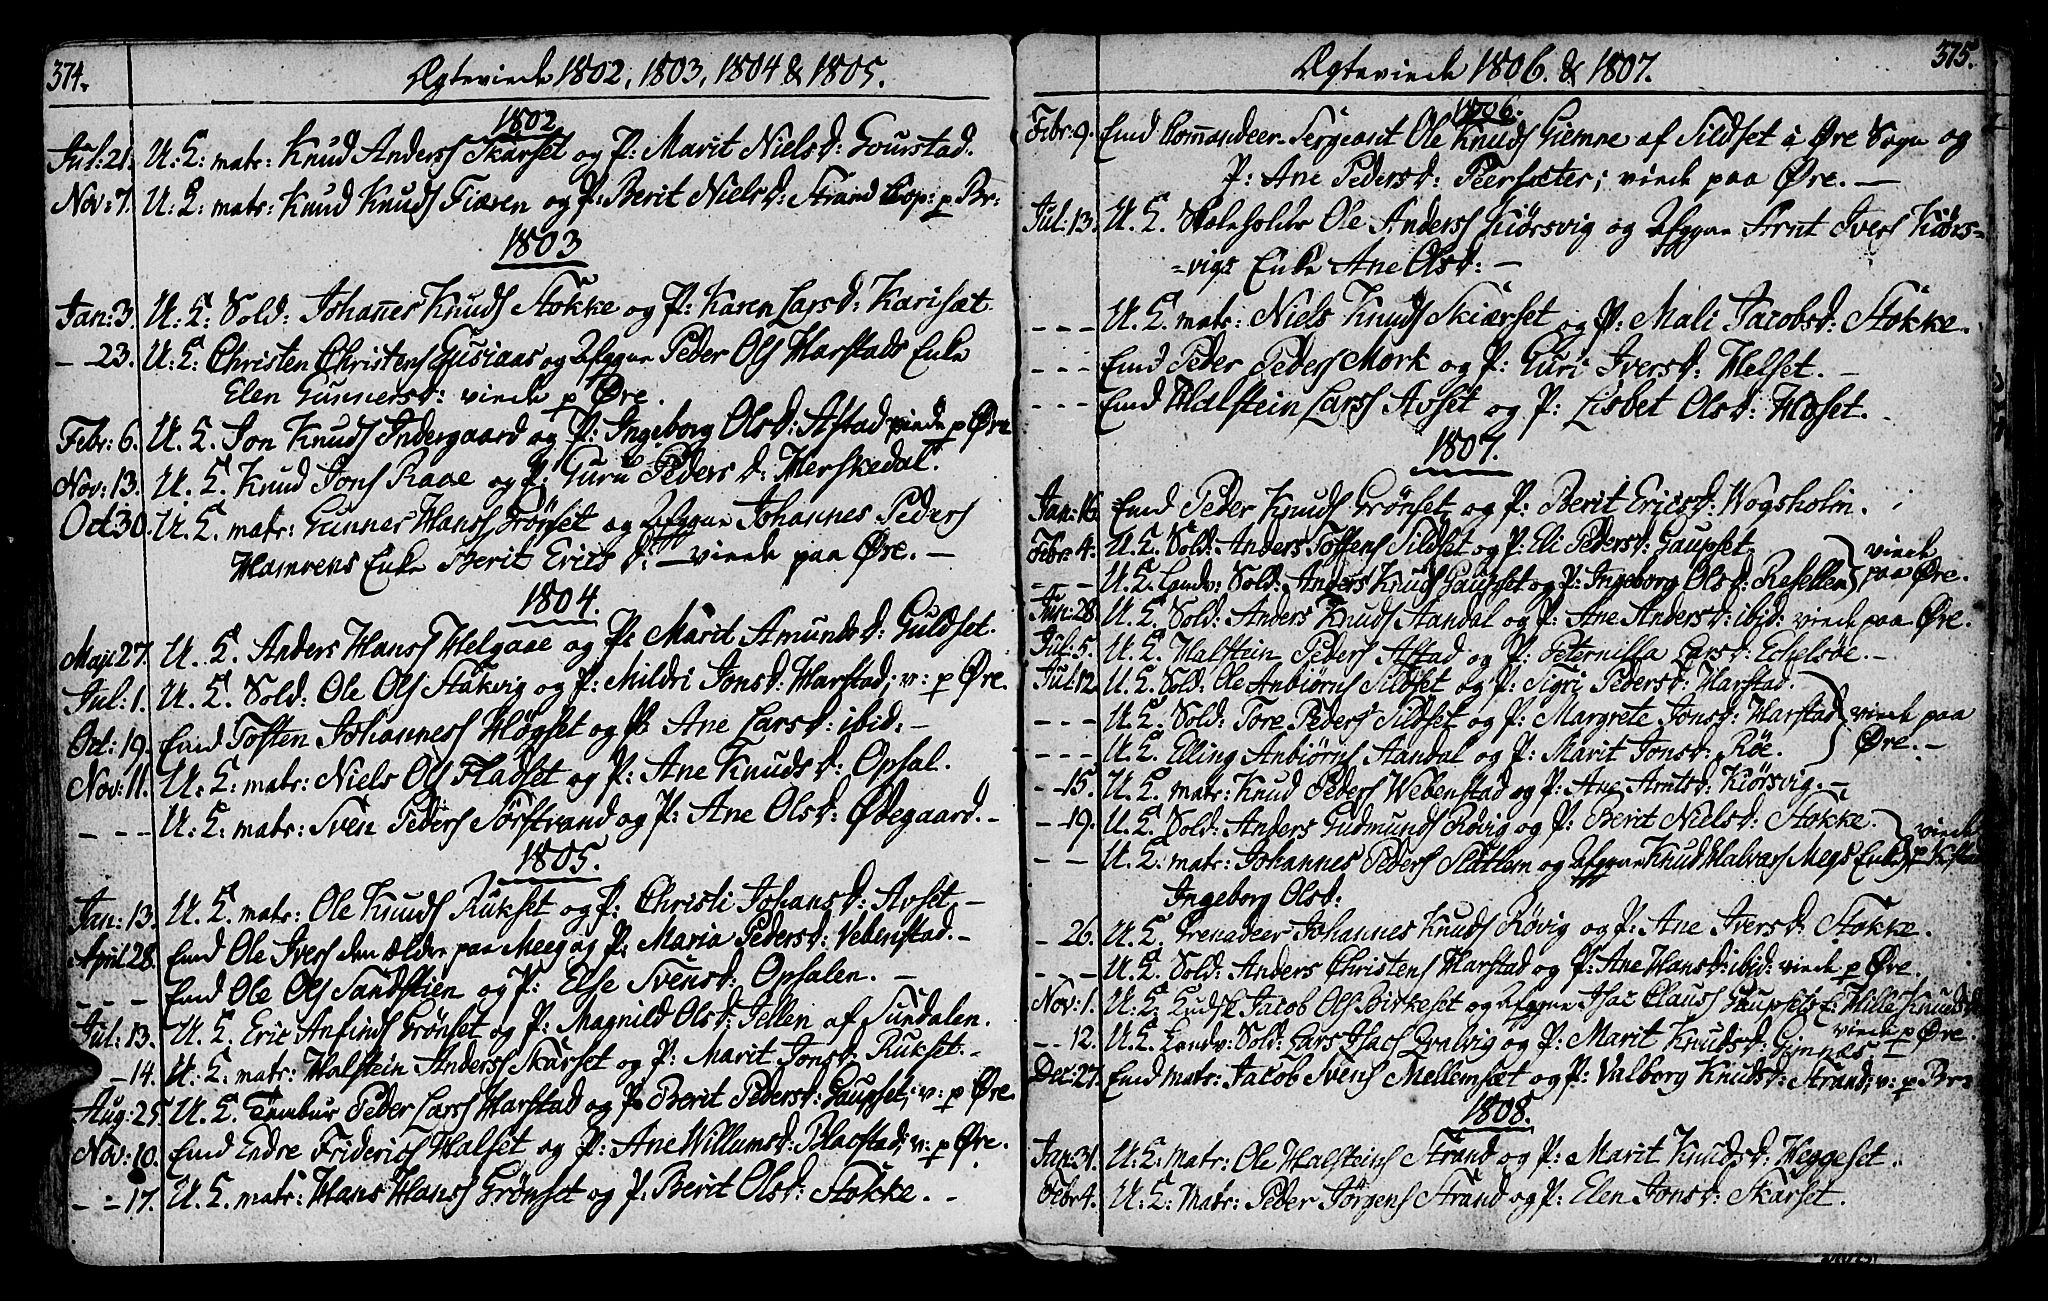 374.
Ægteviede 1802, 1803, 1804 & 1805.
1802
Jul: 21. U: K: matr: Knud Anders Skarset og P: Marit Nielsd: Gourstad.
Nov: 7. U: K: matr: Knud Knuds Fiæren og P: Berit Nielsd: Strand Cop: p Br:
1803
Jan: 3. U: K: Sold: Johannes Knuds Stokke og P: Karen Larsd: Karisæt.
- 23. U: K: Christen Christens Gusiaas og Afggne Peder Ols Harstads Enke
Elen Gunnersd: viede p Øre.
Febr: 6. U. K. Jon Knuds Indergaard og P: Ingeborg Olsd: Astad viede p Øre
Nov: 13. U. K. Knud Jons Raae og P: Guru Pedersd: Herskedal.
Oct 30. U. K. matr: Gunner Hans Grønset og Afggne Johannes Peders
Hamrens Enke Berit Erics d: - viede paa Øre. -
1804.
Maji 27. U. K. Anders Hans Helgaae og P: Marit Amundsd: Guldset.
Jul: 1. U. K. Sold: Ole Ols Stakvig og P: Mildri Jonsd: Harstad; v: p Øre.
Oct: 19. Emd Tosten Johannes Høgset og P: Ane Larsd: ibid: -
Nov: 11. U. K: matr: Niels Ols Fladset og P: Ane Knudsd: Opsal.
- - - U. K: matr: Sven Peders Torstrand og P: Ane Olsd: Ødegaard. -
1805.
Jan: 13. U. K. matr: Ole Knuds Rukset og P: Christi Johansd: Avset. -
April 28. Emd Ole Ivers den ældre paa Meeg og P: Maria Pedersd: Vebenstad. -
- - - Emd Ole Ols Sandstien og P: Else Svensd: Opsalen. -
Jul: 13. U. K. Eric Anfinds Grønset og P: Magnild Olsd: Jellen af Sundalen.
- 14. U. K: matr: Halstein Anders Skarset og P: Marit Jonsd: Rukset. -
Aug: 25. U. K. Tambur Peder Lars Harstad og P: Berit Pedersd: Gaupset; v: p Øre.
Nov: 10. Emd Endre Friderics Halset og P: Ane Willumsd: Blacstad; v: p Øre.
- - 17. U. K. matr: Hans Hans Grønset og P: Berit Olsd: Stokke. -
375.
Ægteviede 1806. & 1807.
1806.
Febr: 9. Emd Commandeer-Sergeant Ole Knuds Giemne af Sildset i Øre Sogn og
P: Ane Pedersd: Peersæter; viede paa Øre. -
Jul: 13. U. K. Skoleholder Ole Anders Kiørsvig og Afggne Arnt Ivers Kiørs=
=vigs Enke Ane Olsd: -
- - - U. K. matr: Niels Knuds Skiærset og P: Mali Jacobsd: Stokke.
- - - Emd Peder Peders Mork og P: Guri Iversd: Helset. -
- - - Emd Halstein Lars Avset og P: Lisbet Olsd: Hoset. -
1807.
Jan: 16. Emd Peder Knuds Grønset og P: Berit Ericsd: Vogsholm.
Febr: 4. U. K. Sold: Anders Tostens Sildset og P: Eli Pedersd: Gaupset. viede
- - - U. K. Landv: Sold: Anders Knuds Gaupset og P: Ingeborg Olsd: Resellen paa Øre.
Jun: 28. U. K. Sold: Anders Knuds Aandal og P: Ane Andersd: ibid: viede paa Øre.
Jul: 5. U. K. Halstein Peders Astad og P: Peternilla Larsd: Echelsøe. -
Jul: 12. U. K. Sold: Ole Anbiørns Sildset og P: Sigri Pedersd: Harstad.
- - - U. K. Sold: Tore Peders Sildset og P: Margrete Jonsd: Harstad viede paa
- - - U. K. Elling Anbiørns Aandal og P: Marit Jonsd: Røe. Øre. -
- - 15. U. K. matr: Knud Peders Webenstad og P: Ane Arntsd: Kiørsvig. -
- - 19. U. K. Sold: Anders Gudmunds Røvig og P: Berit Nielsd: Stokke. viede
- - U. K. matr: Johannes Peders Slotlem og Afggne Knud Halvars Megs Enke p
Ingeborg Olsd:
- 26. U. K. Grenadeer Johannes Knuds Røvig og P: Ane Iversd: Stokke.
- - - U. K. Sold: Anders Christens Harstad og P: Ane Hansd: ibid: viede p Øre.
Nov: 1. U: K: Jacob Ols Birkeset og Afggne Isac Claus Gaupsets E: Mille Knudsd:
viede p Øre.
- - 12. U. K. Landv: Sold: Lars Isacs Qvalvig og P: Marit Knudsd: Gimnæs.
Dec: 27. Emd matr: Jacob Svens Mellemsæt og P: Valborg Knudsd: Strand; v: p Br:
1808.
Jan: 31. U: K: matr: Ole Halsteins Strand og P: Marit Knudsd: Heggeset.
Febr 4. U: K: Matr: Peder Jørgens Strand og P: Elen Jonsd: Skarset.